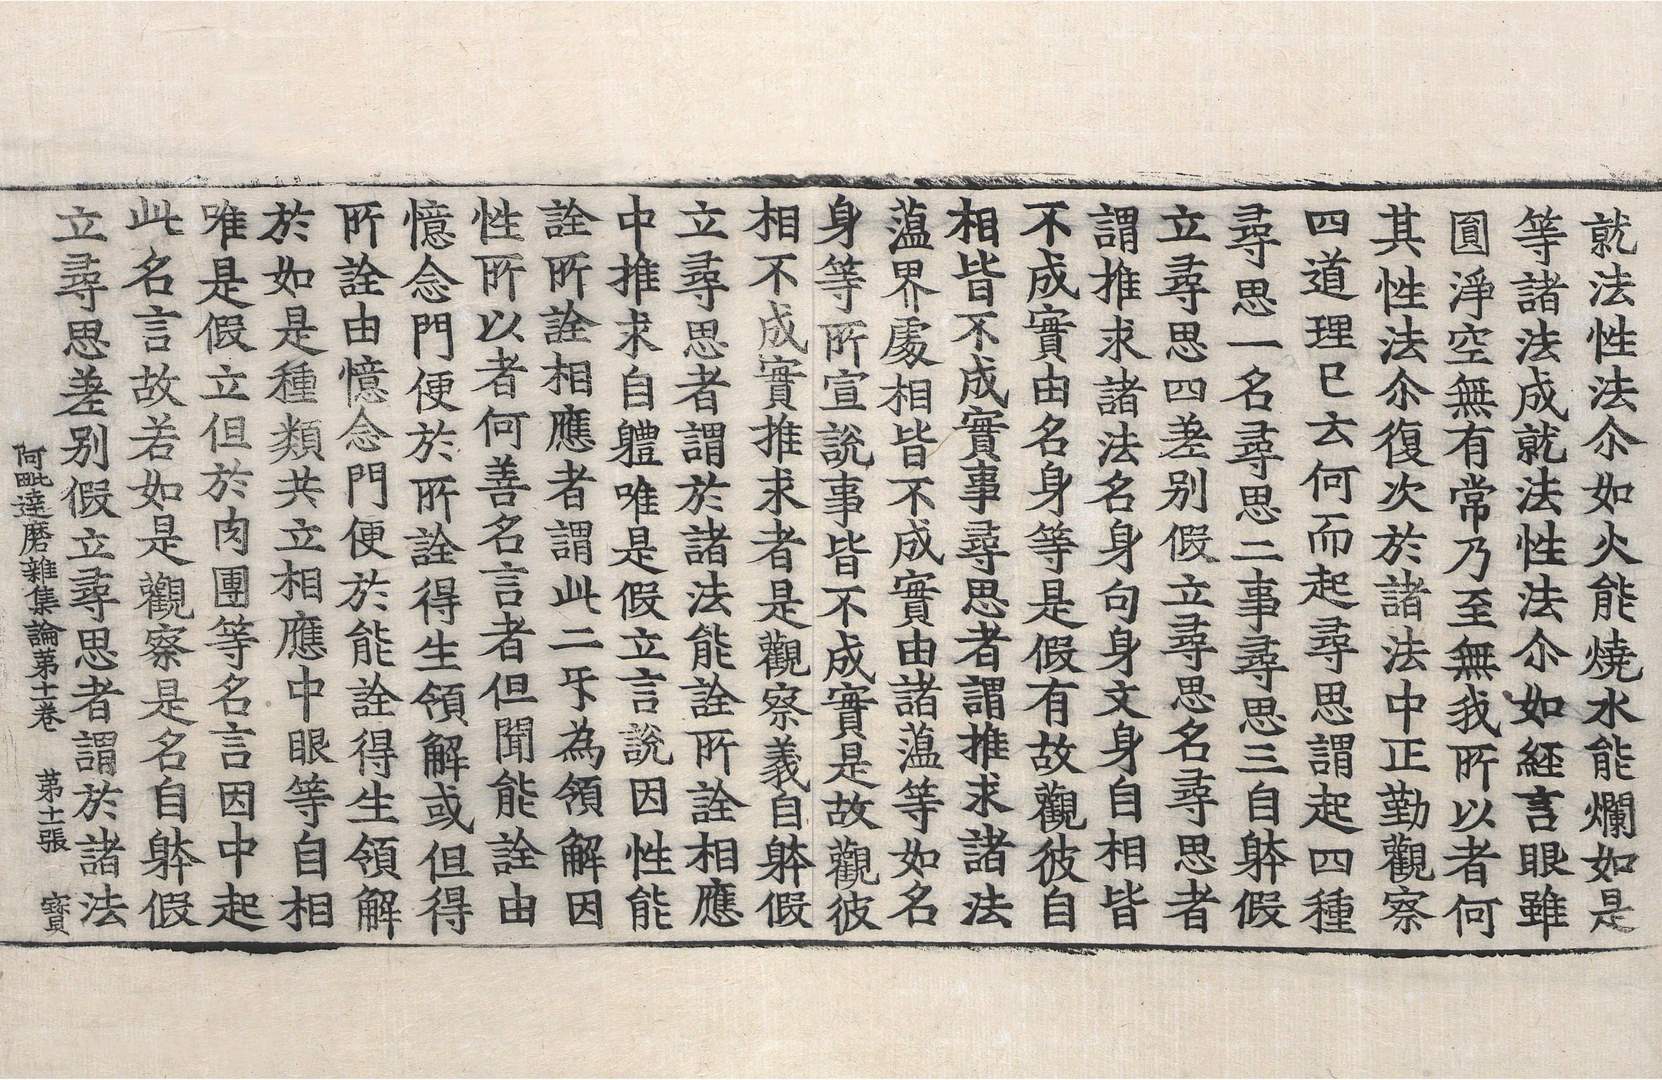 就法性法尒如火能燒水能爛如是
等諸法成就法性法尒如經言眼雖
圓淨空無有常乃至無我所以者何
其性法尒復次於諸法中正勤觀察
四道理已云何而起尋思謂起四種
尋思一名尋思二事尋思三自躰假
立尋思四差别假立尋思名尋思者
謂推求諸法名身句身文身自相皆
不成實由名身等是假有故觀彼自
相皆不成實事尋思者謂推求諸法
薀界處相皆不成實由諸薀等如名
身等所宣說事皆不成實是故觀彼
相不成實推求者是觀察義自躰假
立尋思者謂於諸法能詮所詮相應
中推求自體唯是假立言說因性能
詮所詮相應者謂此二㸦為領解因
性所以者何善名言者但聞能詮由
憶念門便於所詮得生領解或但得
所詮由憶念門便於能詮得生領解
於如是種類共立相應中眼等自相
唯是假立但於肉團等名言因中起
此名言故若如是觀察是名自躰假
立尋思差别假立尋思者謂於諸法
阿毗達磨雜集論第十一卷 第十一張 寳